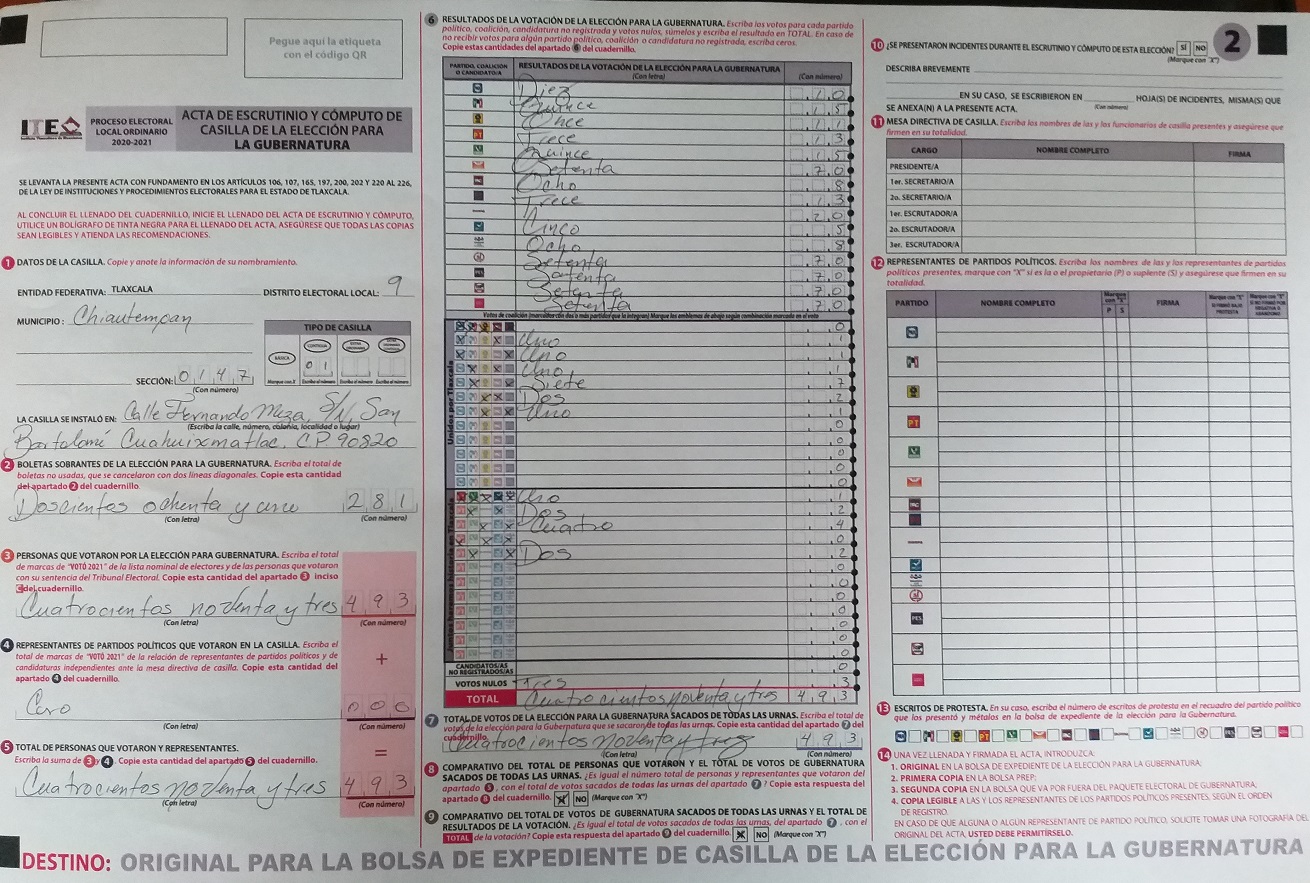 Pegue aquí la etiqueta
con el código QR
ITE
PROCESO ELECTORAL
LOCAL ORDINARIO
2020-2021
ACTA DE ESCRUTINIO Y CÓMPUTO DE
CASILLA DE LA ELECCIÓN PARA
LA GUBERNATURA
SE LEVANTA LA PRESENTE ACTA CON FUNDAMENTO EN LOS ARTÍCULOS 106, 107, 165, 197, 200, 202 Y 220 AL 226,
DE LA LEY DE INSTITUCIONES Y PROCEDIMIENTOS ELECTORALES PARA EL ESTADO DE TLAXCALA.
AL CONCLUIR EL LLENADO DEL CUADERNILLO, INICIE EL LLENADO DEL ACTA DE ESCRUTINIO Y CÓMPUTO,
UTILICE UN BOLÍGRAFO DE TINTA NEGRA PARA EL LLENADO DEL ACTA, ASEGÚRESE QUE TODAS LAS COPIAS
SEAN LEGIBLES Y ATIENDA LAS RECOMENDACIONES.
1 DATOS DE LA CASILLA. Copie y anote la información de su nombramiento.
ENTIDAD FEDERATIVA: TLAXCALA DISTRITO ELECTORAL LOCAL: 9
MUNICIPIO: Chiautempan
TIPO DE CASILLA
BÁSICA CONTIGUA
0 1
Marque con X Escriba el número Escriba el número Escriba el número
SECCIÓN: 0 1 4 7
(Con número)
LA CASILLA SE INSTALÓ EN: Calle Fernando Meza, S/N, San
(Escriba la calle, número, colonia, localidad o lugar)
Bartolomé Cuahuixmatlac. C.P 90820
2 BOLETAS SOBRANTES DE LA ELECCIÓN PARA LA GUBERNATURA. Escriba el total de
boletas no usadas, que se cancelaron con dos líneas diagonales. Copie esta cantidad
del apartado 2 del cuadernillo.
Doscientos ochenta y uno 2 8 1
(Con letra) (Con número)
3 PERSONAS QUE VOTARON POR LA ELECCIÓN PARA GUBERNATURA. Escriba el total
de marcas de "VOTÓ 2021" de la lista nominal de electores y de las personas que votaron
con su sentencia del Tribunal Electoral. Copie esta cantidad del apartado 3 inciso
C del cuadernillo.
Cuatrocientos noventa y tres 4 9 3
(Con letra) (Con número)
4 REPRESENTANTES DE PARTIDOS POLÍTICOS QUE VOTARON EN LA CASILLA. Escriba el
total de marcas de "VOTÓ 2021" de la relación de representantes de partidos políticos y de
candidaturas independientes ante la mesa directiva de casilla. Copie esta cantidad del
apartado 4 del cuadernillo.
+
Cero 0 0 0
(Con letra) (Con número)
5 TOTAL DE PERSONAS QUE VOTARON Y REPRESENTANTES.
Escriba la suma de 3 y 4. Copie esta cantidad del apartado 5 del cuadernillo.
=
Cuatrocientos noventa y tres 4 9 3
(Con letra) (Con número)
6 RESULTADOS DE LA VOTACIÓN DE LA ELECCIÓN PARA LA GUBERNATURA. Escriba los votos para cada partido
político, coalición, candidatura no registrada y votos nulos, súmelos y escriba el resultado en TOTAL. En caso de
no recibir votos para algún partido político, coalición o candidatura no registrada, escriba ceros.
Copie estas cantidades del apartado 6 del cuadernillo.
PARTIDO, COALICIÓN O CANDIDATO/A RESULTADOS DE LA VOTACIÓN DE LA ELECCIÓN PARA LA GUBERNATURA
(Con letra) (Con número)
Diez 1 0
Quince 1 5
Once 1 1
PT Trece 1 3
Quince 1 5
Setenta 7 0
Ocho 8
Trece 1 3
2 0
Cinco 5
Ocho 8
Setenta 7 0
PES Setenta 7 0
Setenta 7 0
Setenta 7 0
Votos de coalición (marcados con dos o más partidos que la integran) Marque los emblemas de abajo según combinación marcada en el voto
Unidos por Tlaxcala
0
Uno 1
Uno 1
Uno 1
Siete 7
Dos 2
Uno 1
0
0
0
0
0
Uno 1
Dos 2
Cuatro 4
0
Dos 2
0
0
0
0
0
0
0
CANDIDATOS/AS
NO REGISTRADOS/AS 0
VOTOS NULOS Tres 3
TOTAL Cuatrocientos noventa y tres 4 9 3
7 TOTAL DE VOTOS DE LA ELECCIÓN PARA LA GUBERNATURA SACADOS DE TODAS LAS URNAS. Escriba el total de
votos de la elección para la Gubernatura que se sacaron de todas las urnas. Copie esta cantidad del apartado 7 del
cuadernillo.
Cuatrocientos noventa y tres 4 9 3
(Con letra) (Con número)
8 COMPARATIVO DEL TOTAL DE PERSONAS QUE VOTARON Y EL TOTAL DE VOTOS DE GUBERNATURA
SACADOS DE TODAS LAS URNAS. ¿Es igual el número total de personas y representantes que votaron del
apartado 5, con el total de votos sacados de todas las urnas del apartado 7? Copie esta respuesta del
apartado 8 del cuadernillo. X NO (Marque con "X")
9 COMPARATIVO DEL TOTAL DE VOTOS DE GUBERNATURA SACADOS DE TODAS LAS URNAS Y EL TOTAL DE
RESULTADOS DE LA VOTACIÓN. ¿Es igual el total de votos sacados de todas las urnas, del apartado 7, con el
TOTAL de la votación? Copie esta respuesta del apartado 9 del cuadernillo. X NO (Marque con "X")
10 ¿SE PRESENTARON INCIDENTES DURANTE EL ESCRUTINIO Y CÓMPUTO DE ESTA ELECCIÓN? SÍ NO
(Marque con "X")
2
DESCRIBA BREVEMENTE
EN SU CASO, SE ESCRIBIERON EN HOJA(S) DE INCIDENTES, MISMA(S) QUE
(Con número)
SE ANEXA(N) A LA PRESENTE ACTA.
11 MESA DIRECTIVA DE CASILLA. Escriba los nombres de las y los funcionarios de casilla presentes y asegúrese que
firmen en su totalidad.
CARGO NOMBRE COMPLETO FIRMA
PRESIDENTE/A
1er. SECRETARIO/A
2o. SECRETARIO/A
1er. ESCRUTADOR/A
2o. ESCRUTADOR/A
3er. ESCRUTADOR/A
12 REPRESENTANTES DE PARTIDOS POLÍTICOS. Escriba los nombres de las y los representantes de partidos
políticos presentes, marque con "X" si es la o el propietario (P) o suplente (S) y asegúrese que firmen en su
totalidad.
PARTIDO NOMBRE COMPLETO Marque con "X" P S FIRMA
PT
PES
13 ESCRITOS DE PROTESTA. En su caso, escriba el número de escritos de protesta en el recuadro del partido político
que los presentó y métalos en la bolsa de expediente de la elección para la Gubernatura.
14 UNA VEZ LLENADA Y FIRMADA EL ACTA, INTRODUZCA:
1. ORIGINAL EN LA BOLSA DE EXPEDIENTE DE LA ELECCIÓN PARA LA GUBERNATURA;
2. PRIMERA COPIA EN LA BOLSA PREP;
3. SEGUNDA COPIA EN LA BOLSA QUE VA POR FUERA DEL PAQUETE ELECTORAL DE GUBERNATURA,
4. COPIA LEGIBLE A LAS Y LOS REPRESENTANTES DE LOS PARTIDOS POLÍTICOS PRESENTES, SEGÚN EL ORDEN
DE REGISTRO.
EN CASO DE QUE ALGUNA O ALGÚN REPRESENTANTE DE PARTIDO POLÍTICO, SOLICITE TOMAR UNA FOTOGRAFÍA DEL
ORIGINAL DEL ACTA, USTED DEBE PERMITÍRSELO.
DESTINO: ORIGINAL PARA LA BOLSA DE EXPEDIENTE DE CASILLA DE LA ELECCIÓN PARA LA GUBERNATURA